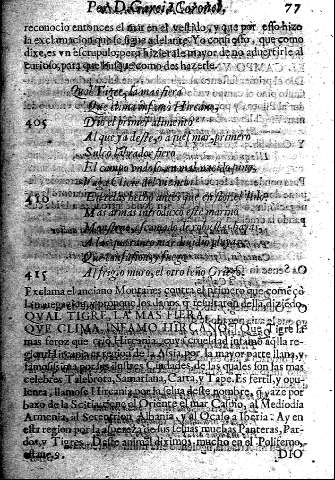 Por D. Garcia Coronel. 77
reconocio entonces el mar en el vestido, y que por esso hizo
la exclamacion que se sigue adelante. Yo confiesso, que como
dixe, es vn escrupulo, pero hiziera le mayor de no aduertirle al
curioso, para que
Qual Tigre, la mas fiera
Que clima infamò Hircano,
405 Diò el primer alimento
Al que
Surcò labrador fiero
El campo vndoso en mal nacido pino,
410
hecho antes que
Mas armas introduxo este marino
Monstruo, escamado de robustas hayas,
A las que tanto mar diuide playas,
Que confusion, y fuego
415 Al Frigio muro, el otro leño Griego.
Exclama el anciano Montañes contra el primero que começò
la nauegacion, y propone los daños que resultaron della diziẽdo.
QVAL TIGRE, LA MAS FIERA
QVE CLIMA INFAMO HIRCANO. Què Tigre la
mas feroz que criò Hircania, cuya crueldad infamò aq̃lla re-
gion? Hircania es region de la Assia, por la mayor parte llana, y
famosissima por sus Ciudades, de las quales son las mas
celebres Talebrota, Samariana, Carta, y Tape. Es fertil, y opu-
lenta, llamose Hircania por la selua deste nombre, y yaze por
baxo de la Scitia, tiene al Oriente el mar Caspio, al Mediodia
Armenia, al Setentrion Albania, y al Ocaso a Iberia: Ay en
esta region por la aspereza de sus seluas muchas Panteras, Par-
dos, y Tigres. Deste animal diximos mucho en el Polifemo,
estanc. 9. DIO